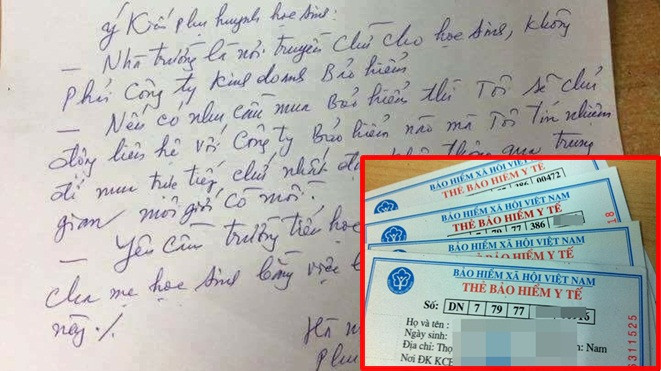 ý Kiến phụ huynh học sinh:
— Nhà trường là nơi truyền chữ cho học sinh, không
phải Công ty kinh doanh Bảo hiểm
— Nếu có nhu cầu mua Bảo hiểm thì Tôi sẽ chủ
động liên hệ với Công ty Bảo hiểm nào mà Tôi tín nhiệm
để mua trực tiếp, chứ nhất thông qua trung
gian môi giới
— Yêu cầu trường tiểu học
cha mẹ học sinh bằng việc
này ./.
Phụ
386 00472
BẢO HIỂM XÃ HỘI VIỆT NAM
THẺ BẢO HIỂM Y TẾ
BẢO HIỂM XÃ HỘI VIỆT NAM
THẺ BẢO HIỂM Y TẾ
79 77 386
18
BẢO HIỂM XÃ HỘI VIỆT NAM
THẺ BẢO HIỂM Y TẾ
BẢO HIỂM XÃ HỘI VIỆT NAM
THẺ BẢO HIỂM Y TẾ
Số: DN 7 79 77
Họ và tên :
Ngày sinh:
Địa chỉ: Thọ Nam
Nơi ĐK KCB
6311525